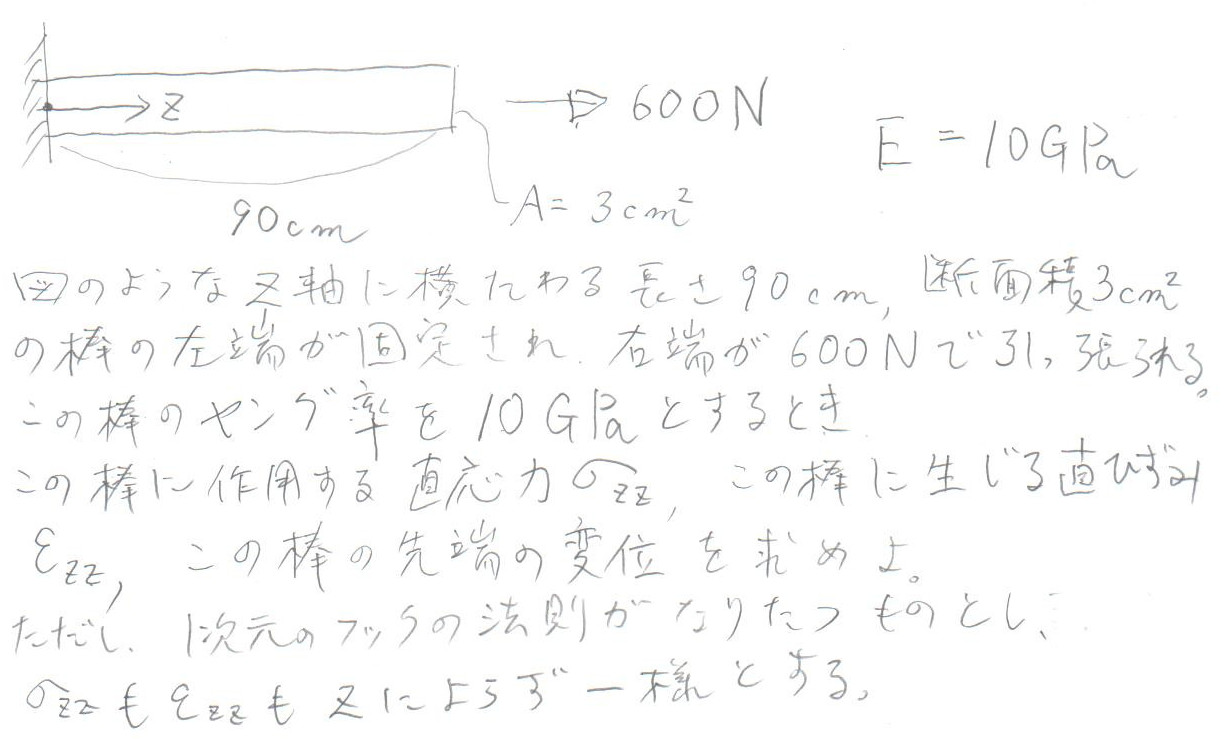 Z
600N
E = 10GPa
A = 3cm²
90cm
図のようなZ軸に横たわる長さ90cm, 断面積3cm²
の棒の左端が固定され、右端が600Nで引っ張られる。
この棒のヤング率を10GPaとするとき
この棒に作用する直応力σzz, この棒に生じる直ひずみ
εzz, この棒の先端の変位を求めよ。
ただし、1次元のフックの法則がなりたつものとし、
σzzもεzzもzによらず一様とする。